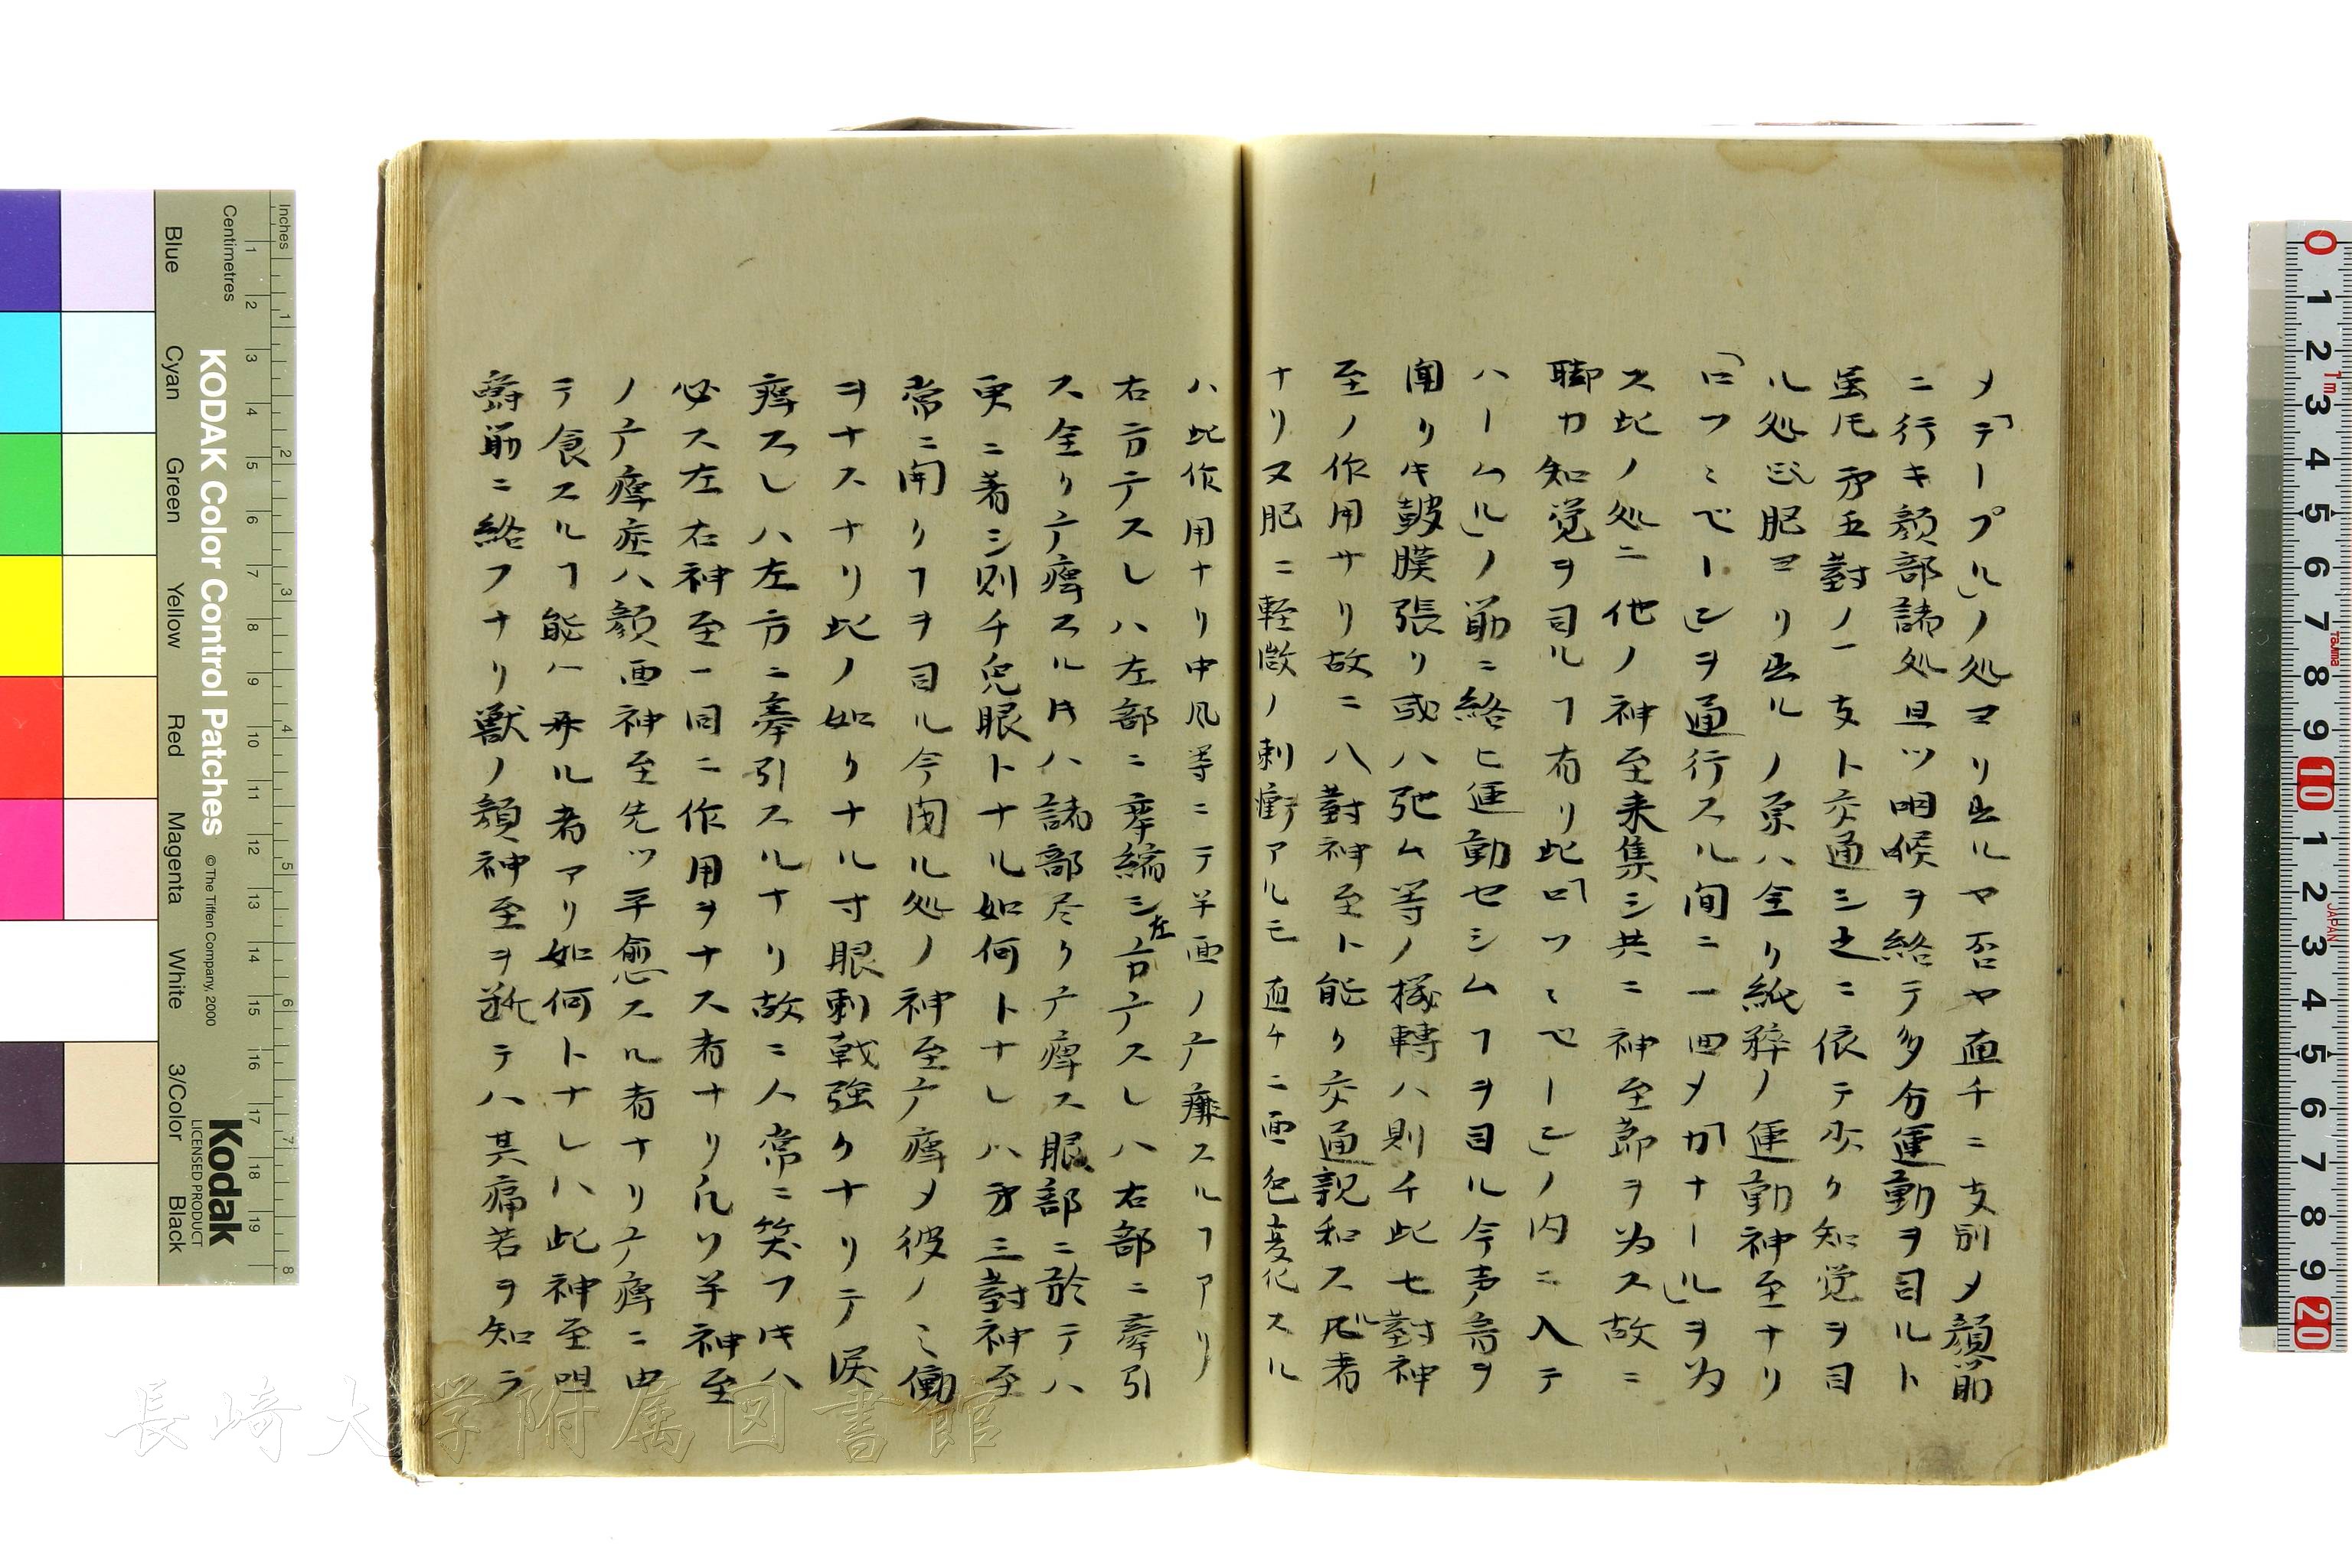 メ「テープル」ノ処ヨリ出ルヤ否ヤ直チニ支別メ顔筋
ニ行キ顔部諸処且ツ咽喉ヲ絡テ多分運動ヲ司ルト
虽𪜈矛五對ノ一支ト交通シ之ニ依テ少ク知覚ヲ司
ル処 肥ヨリ出ルノ原ハ全ク純粋ノ運動神至ナリ
「ロフミベーレ」ヲ通行スル间ニ一回メ「カナール」ヲ为
ス此ノ処ニ他ノ神至来集シ共ニ神至節ヲ为ス故ニ
聊カ知覚ヲ司ルヿ有リ此「ロツミベーレ」ノ内ニ入テ
ハームル」ノ筋ニ絡ヒ運動セシムヿヲ司ル今声音ヲ
聞クキ皷膜張リ或ハ弛ム等ノ機轉ハ則チ此七對神
至ノ作用サリ故ニ八對神至ト能ク交通親和ス𪜈者
ナリ又肥ニ軽微ノ刺衝アルモ直チニ面色変化スル
ハ此作用ナリ中风等ニテ半面ノ痲スルヿアリ
右方テスレハ左部ニ牽縮シ左方テスレハ右部ニ牽引
ス全ク痺スル片ハ諸部尽ク痺ス眼部ニ於テハ
更ニ著シ則チ兎眼トナル如何トナレハ矛三對神至
常ニ開クヿヲ司ル今閉ル処ノ神至痺メ彼ノミ働
ヲナスナリ此ノ如クナル寸眼刺戟強クナリテ涙
齊スレハ左方ニ牽引スルナリ故ニ人常ニ笑フ片ハ
必ス左右神至一同ニ作用ヲナス者ナリ凡ソ半神至
ノ痺症ハ顔面神至先ツ平愈スル者ナリ痺ニ由
テ食スルヿ能ハ サル者アリ如何トナレハ此神至咀
嚼筋ニ絡フナリ獣ノ顔神至ヲ断テハ其痛苦ヲ知ラ
KODAK Color Control Patches
©The Tiffen Company, 2000
Kodak
LICENSED PRODUCT
Inches
Centimetres
Blue
Cyan
Green
Yellow
Red
Magenta
White
3/Color
Black
JAPAN
長崎大学附属図書館